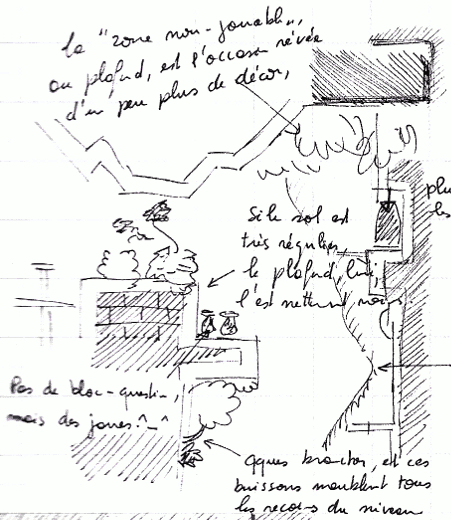 la "zone non-jouable",
au plafond, est l'occasion rêvée
d'un peu plus de décor,
plu
les
Si le sol est
très régulier,
le plafond, lui,
l'est nettement moins.
Pas de bloc-question,
mais des jarres ^_^
Qques branches, et ces
buissons meublent tous
les recoins du niveau